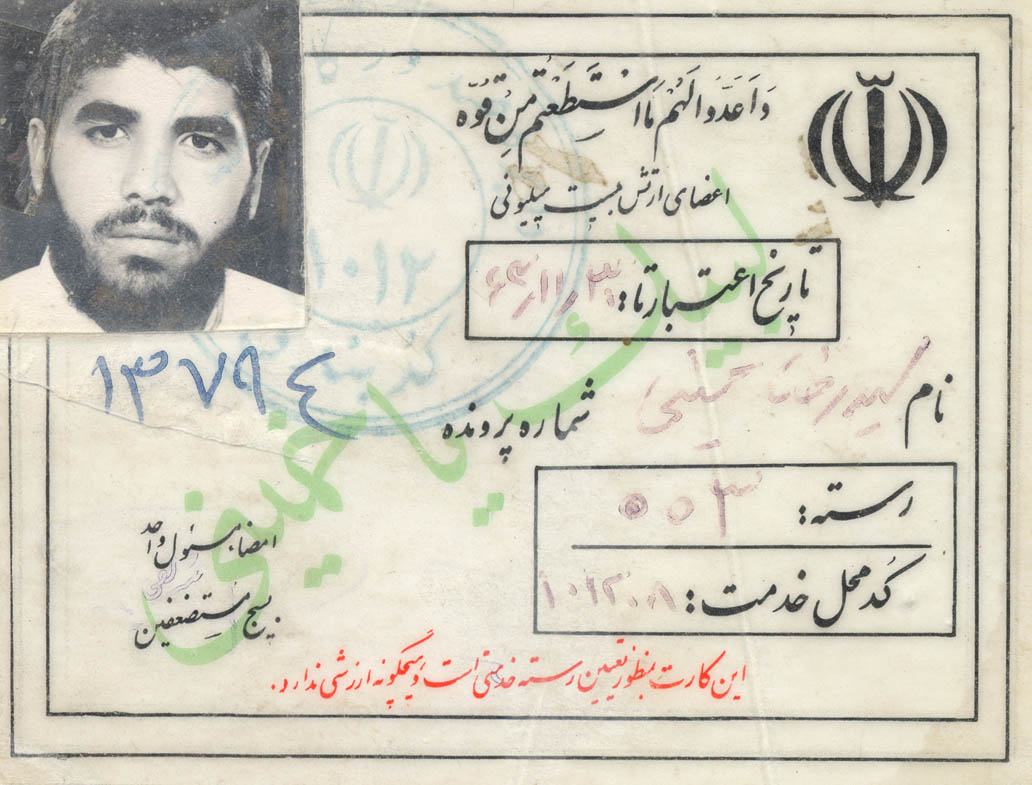 وَاَعَدّوا لَهُم مَا اسْتَطَعْتُم مِنْ قُوَّه
اعضای ارتش بیست میلیونی
تاریخ اعتبار تا: ۶۴٫۱۱٫۳۰
نام سیدرضا حسینی
شماره پرونده ۱۳۷۹۴
رسته: ۵۵۳
کُد محل خدمت: ۱۰۱۲۰۸
لبیک یا خمینی
امضاء مسئول واحد
بسیج مستضعفین
این کارت بمنظور تعیین رسته خدمتی است و هیچگونه ارزشی ندارد.
۱۰۱۲